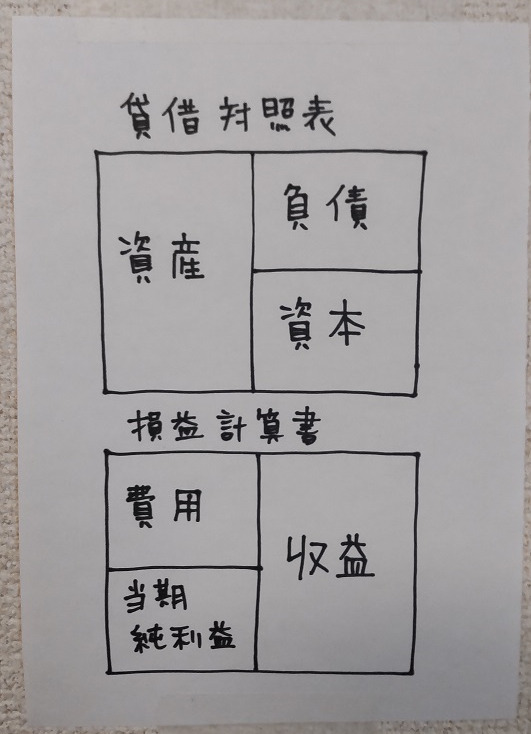 貸借対照表
資産
負債
資本
損益計算書
費用
当期
純利益
収益